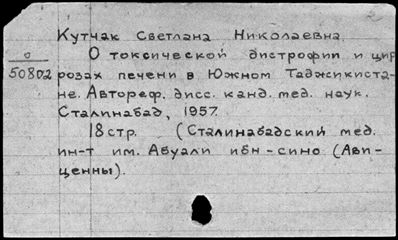 Кутчак Светлана Николаевна.
О токсической дистрофии и цир-
розах печени в Южном Таджикиста-
не. Автореф. дисс. канд. мед. наук.
Сталинабад, 1957.
18 стр. (Сталинабадский мед.
ин-т им. Абуали ибн-сино (Ави-
ценны).
0
50802